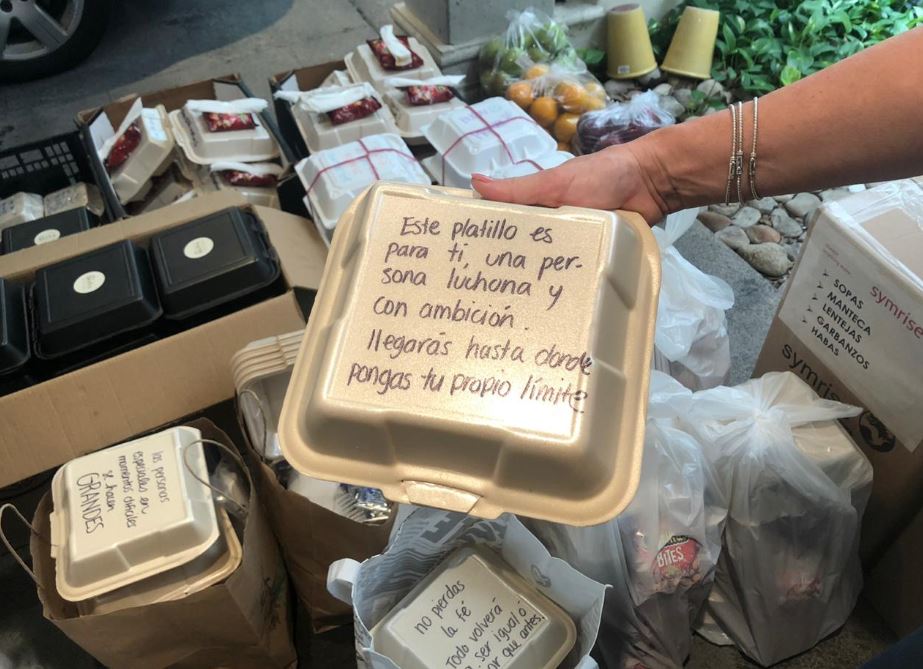 Este platillo es
para ti, una per-
sona luchona y
con ambición.
llegarás hasta donde
pongas tu propio límite
las personas
especiales en
momentos difíciles
se hacen
GRANDES
no pierdas
la fé
Todo volverá
a ser igual ó
que antes.
BITES
symrise
SOPAS
MANTECA
LENTEJAS
GARBANZOS
HABAS
symrise